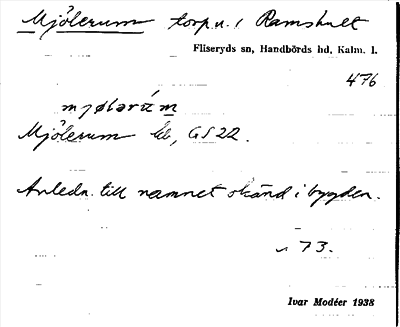 Mjölerum torp u. i Ramshult
Fliseryds sn, Handbörds hd, Kalm. l.
476
Mjölerum hb, GS 22.
Anledn. till namnet okänd i bygden.
s. 73.
Ivar Modéer 1938